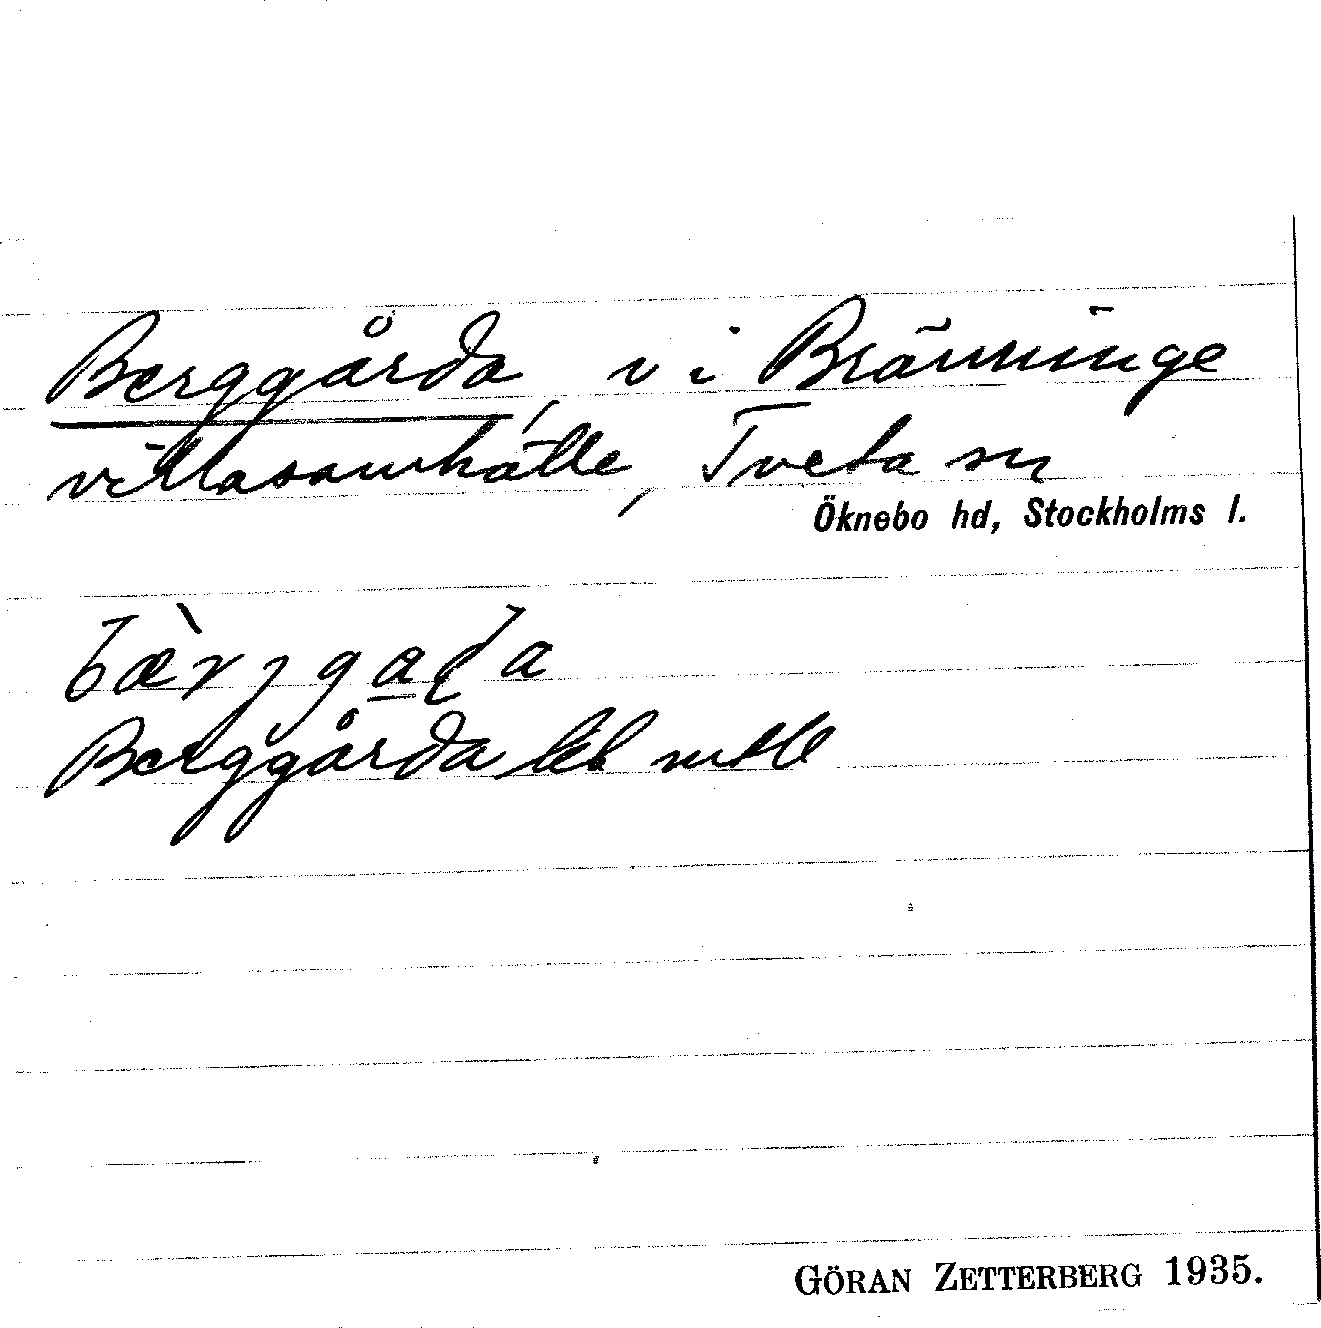 Berggårda, v i Bränninge
villasamhälle, Tveta sn
Öknebo hd, Stockholms l.
bæ̀rjga̲ḍa
Berggårda leb mtll
GÖRAN ZETTERBERG 1935.